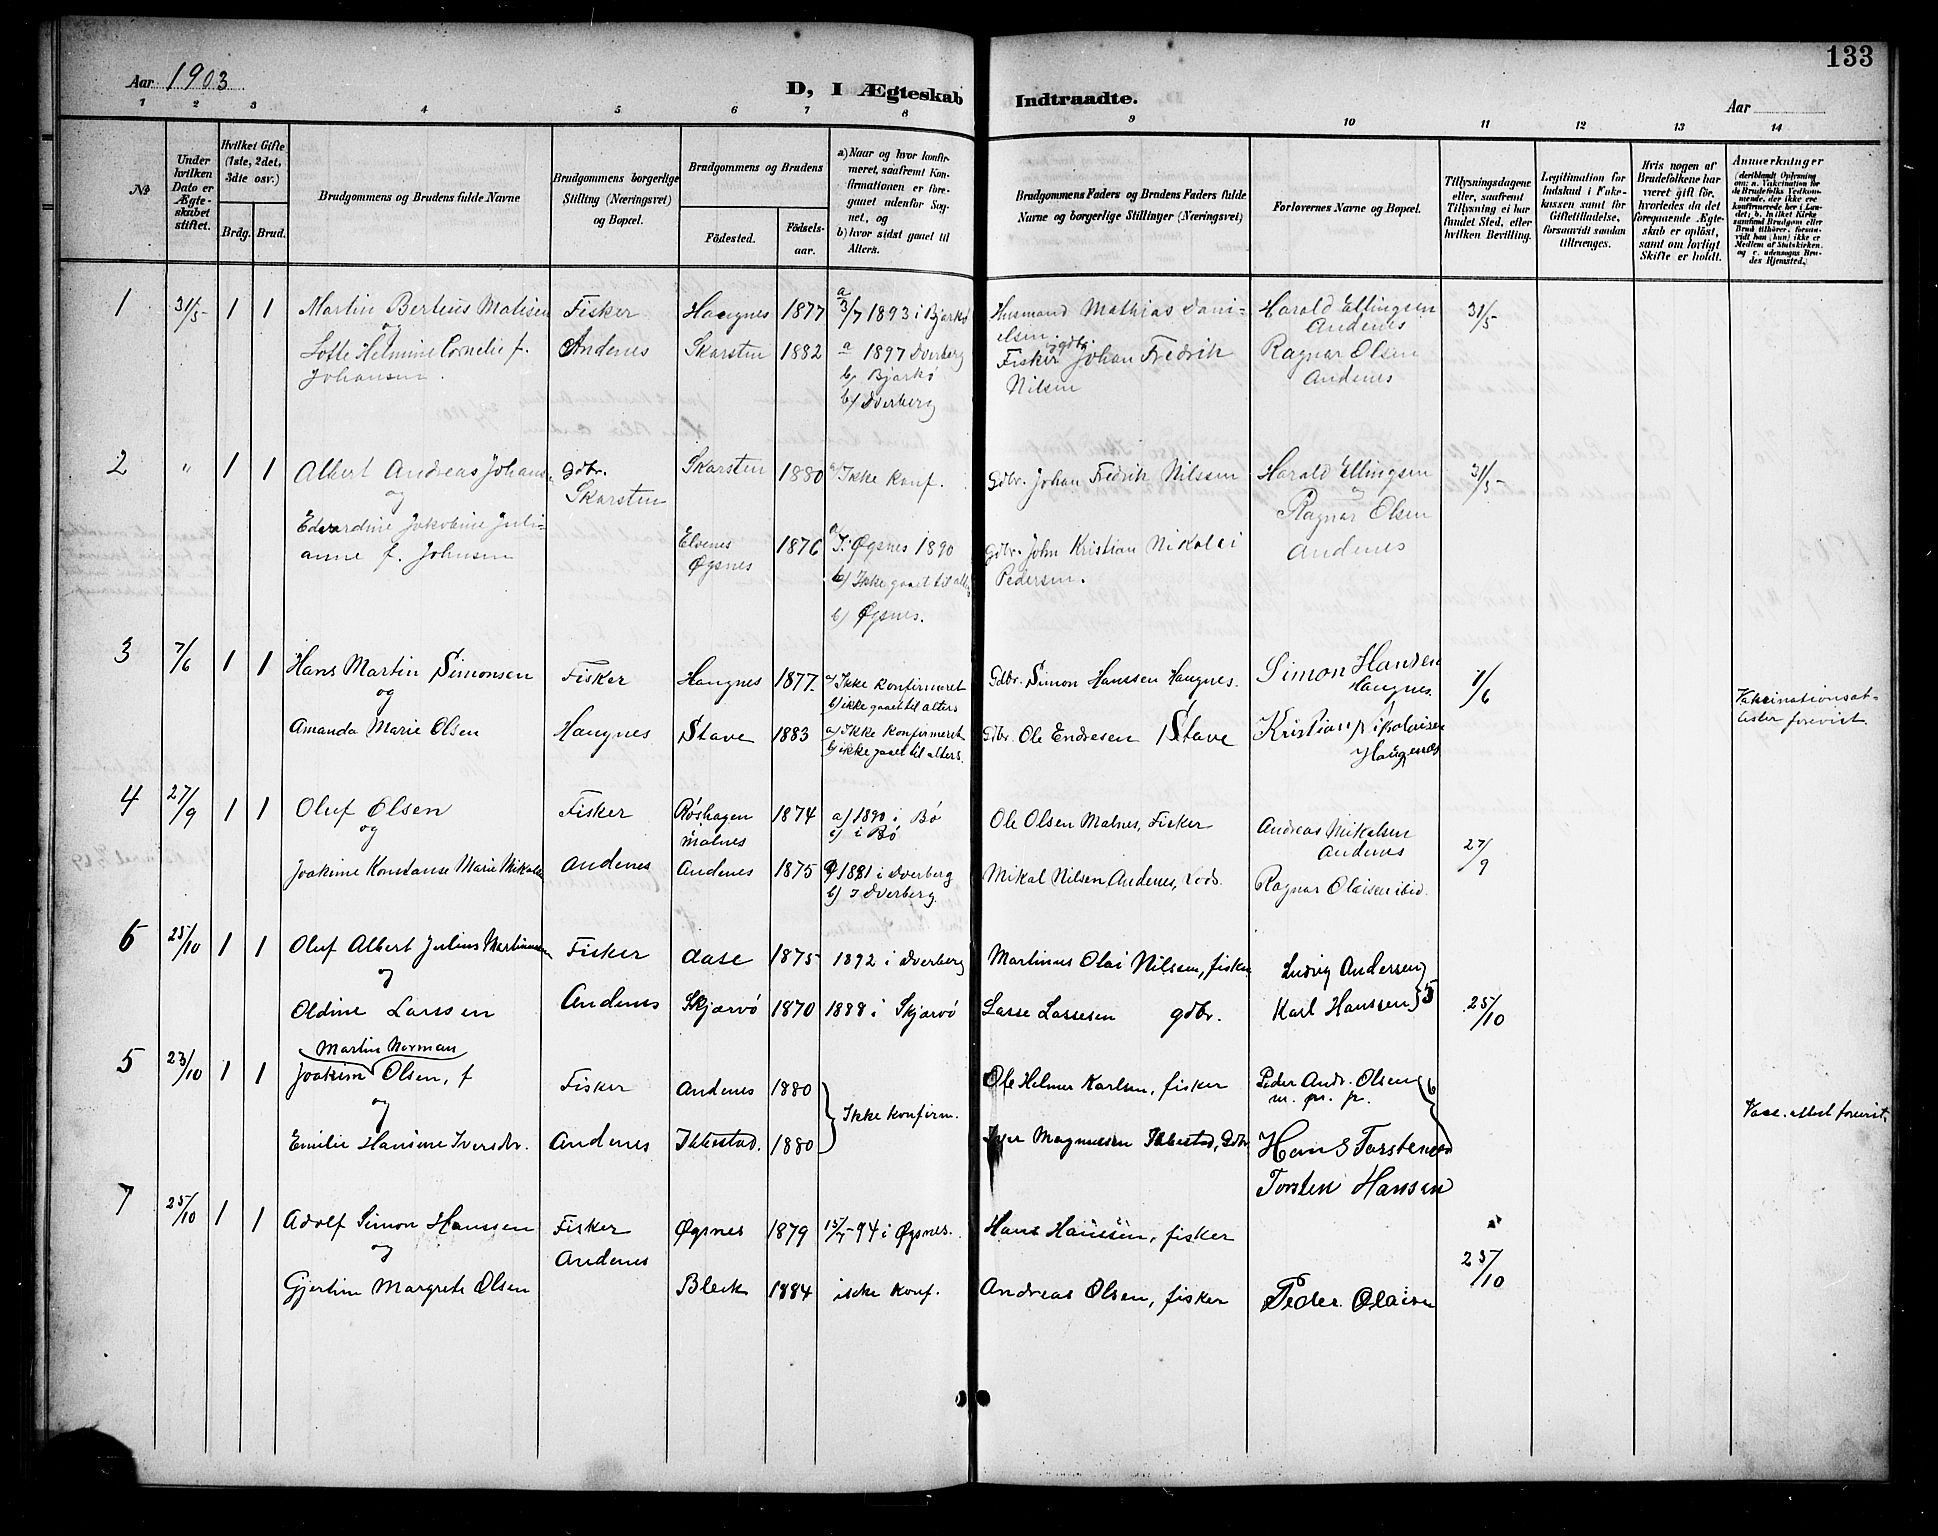 133
Aar 1903
D, I Ægteskab Indtraadte.
Aar
1 2 3 4 5 6 7 8 9 10 11 12 13 14
№
Under hvilken Dato er Ægteskabet stiftet.
Hvilket Gifte (1ste, 2det, 3die osv.)
Brdg. Brud.
Brudgommens og Brudens fulde Navne
Brudgommens borgerlige Stilling (Næringsvei) og Bopæl.
Brudgommens og Brudens
Födested.
Födsels-aar.
a) Naar og hvor konfirmeret, saafremt Konfirmationen er foregaaet udenfor Sognet, og
b) hvor sidst gaaet til Alters.
Brudgommens Faders og Brudens Faders fulde Navne og borgerlige Stillinger (Næringsvei)
Forlovernes Navne og Bopæl.
Tillysningsdagene eller, saafremt Tillysning ei har fundet Sted, efter hvilken Bevilling.
Legitimation for Indskud i Enkekassen samt for Giftetilladelse, forsaavidt saadan tiltrænges.
Hvis nogen af Brudefolkene har været gift før, hvorledes da det foregaaende Ægteskab er opløst, samt om lovligt Skifte er holdt.
Anmerkninger
(deriblandt Oplysning om: a. Vakcination for de Brudefolks Vedkommende, der ikke ere konfirmerede her i Landet; b. hvilket Kirkesamfund Brudgom eller Brud tilhører, forsaavidt han (hun) ikke er Medlem af Statskirken, og c. udensogns Brudes Hjemsted.)
1 31/5 1 1 Martin Berteus Matisen Fisker Haugnes 1877 a 3/7 1893 i Bjarkø Husmand Mathias Danielsen Harald Ellingsen Andenes 31/5
og
Lotte Helmine Cornelie f. Johansen. Andenes Skarsten 1882 a 1897 Dverberg Fisker og gdbr. Johan Fredrik Nilsen Ragnar Olsen Andenes
b) Bjarkø
b) Dverberg
2 " 1 1 Albert Andreas Johans. Gdbr. Skarsten Skarsten 1880 a) Ikke konf. Gdbr. Johan Fredrik Nilssen Harald Ellingsen 31/5
og
Edvardine Jakobine Julianne f. Johnsen Elvenes Øgsnes 1876 a) I Øgsnes 1890 Gdbr. John Kristian Nikolai Pedersen. Ragnar Olsen Andenes
b) Ikke gaaet til alt.
b) Øgsnes.
3 7/6 1 1 Hans Martin Simonsen Fisker Haugnes 1877. a) Ikke konfirmeret Gdbr. Simon Hanssen Haugnes. Simon Hansen Haugnes. 1/6
b) ikke gaaet til alters
og
Amanda Marie Olsen Haugnes Stave 1883 a) Ikke konfirmeret Gdbr. Ole Endresen Stave Kristian Nikolaisen Haugenæs
b) ikke gaaet til alters.
Vakcinationsattester forevist.
4 27/9 1 1 Oluf Olsen Fisker Røshagen Malnes 1874 a) 1890 i Bø Ole Olsen Malnes, Fisker Andreas Mikalsen Andenes 27/9
b) i Bø
og
Joakime Konstanse Marie Mikals Andenes Andenes 1875 a) 1891 i Dverberg Mikal Nilsen Andenes, Lods. Ragnar Olaisen ibid.
b) I Dverberg.
6 25/10 1 1 Oluf Albert Julius Martinussen Fisker Aase 1875 1892 i Dverberg Martinus Olai Nilssen, fisker Ludvig Andersen
og
Oldine Larssen Andenes Skjærvø 1870 1888 i Skjærvø Lasse Lassesen gdbr. Karl Hanssen 5 25/10
Martin Norman
5 23/10 1 1 Joakim Olsen, f Fisker Andenes 1880 Ikke konfirm. Ole Helmer Karlsen, fisker Peder Andr. Olsen 6
m. p. p.
og
Emilie Hansine Iversdr. Andenes Ibbestad. 1880 Iver Magnussen Ibbestad, Gdbr. Hans Torstensen
Vacc. attest forevist.
7 25/10 1 1 Adolf Simon Hanssen Fisker Andenes Øgsnes 1879 15/7-94 i Øgsnes. Hans Hanssen, fisker Torsten Hansen 25/10
og
Gjertine Margrete Olsen Bleik 1884 ikke konf. Andreas Olsen, fisker Peder Olaisen